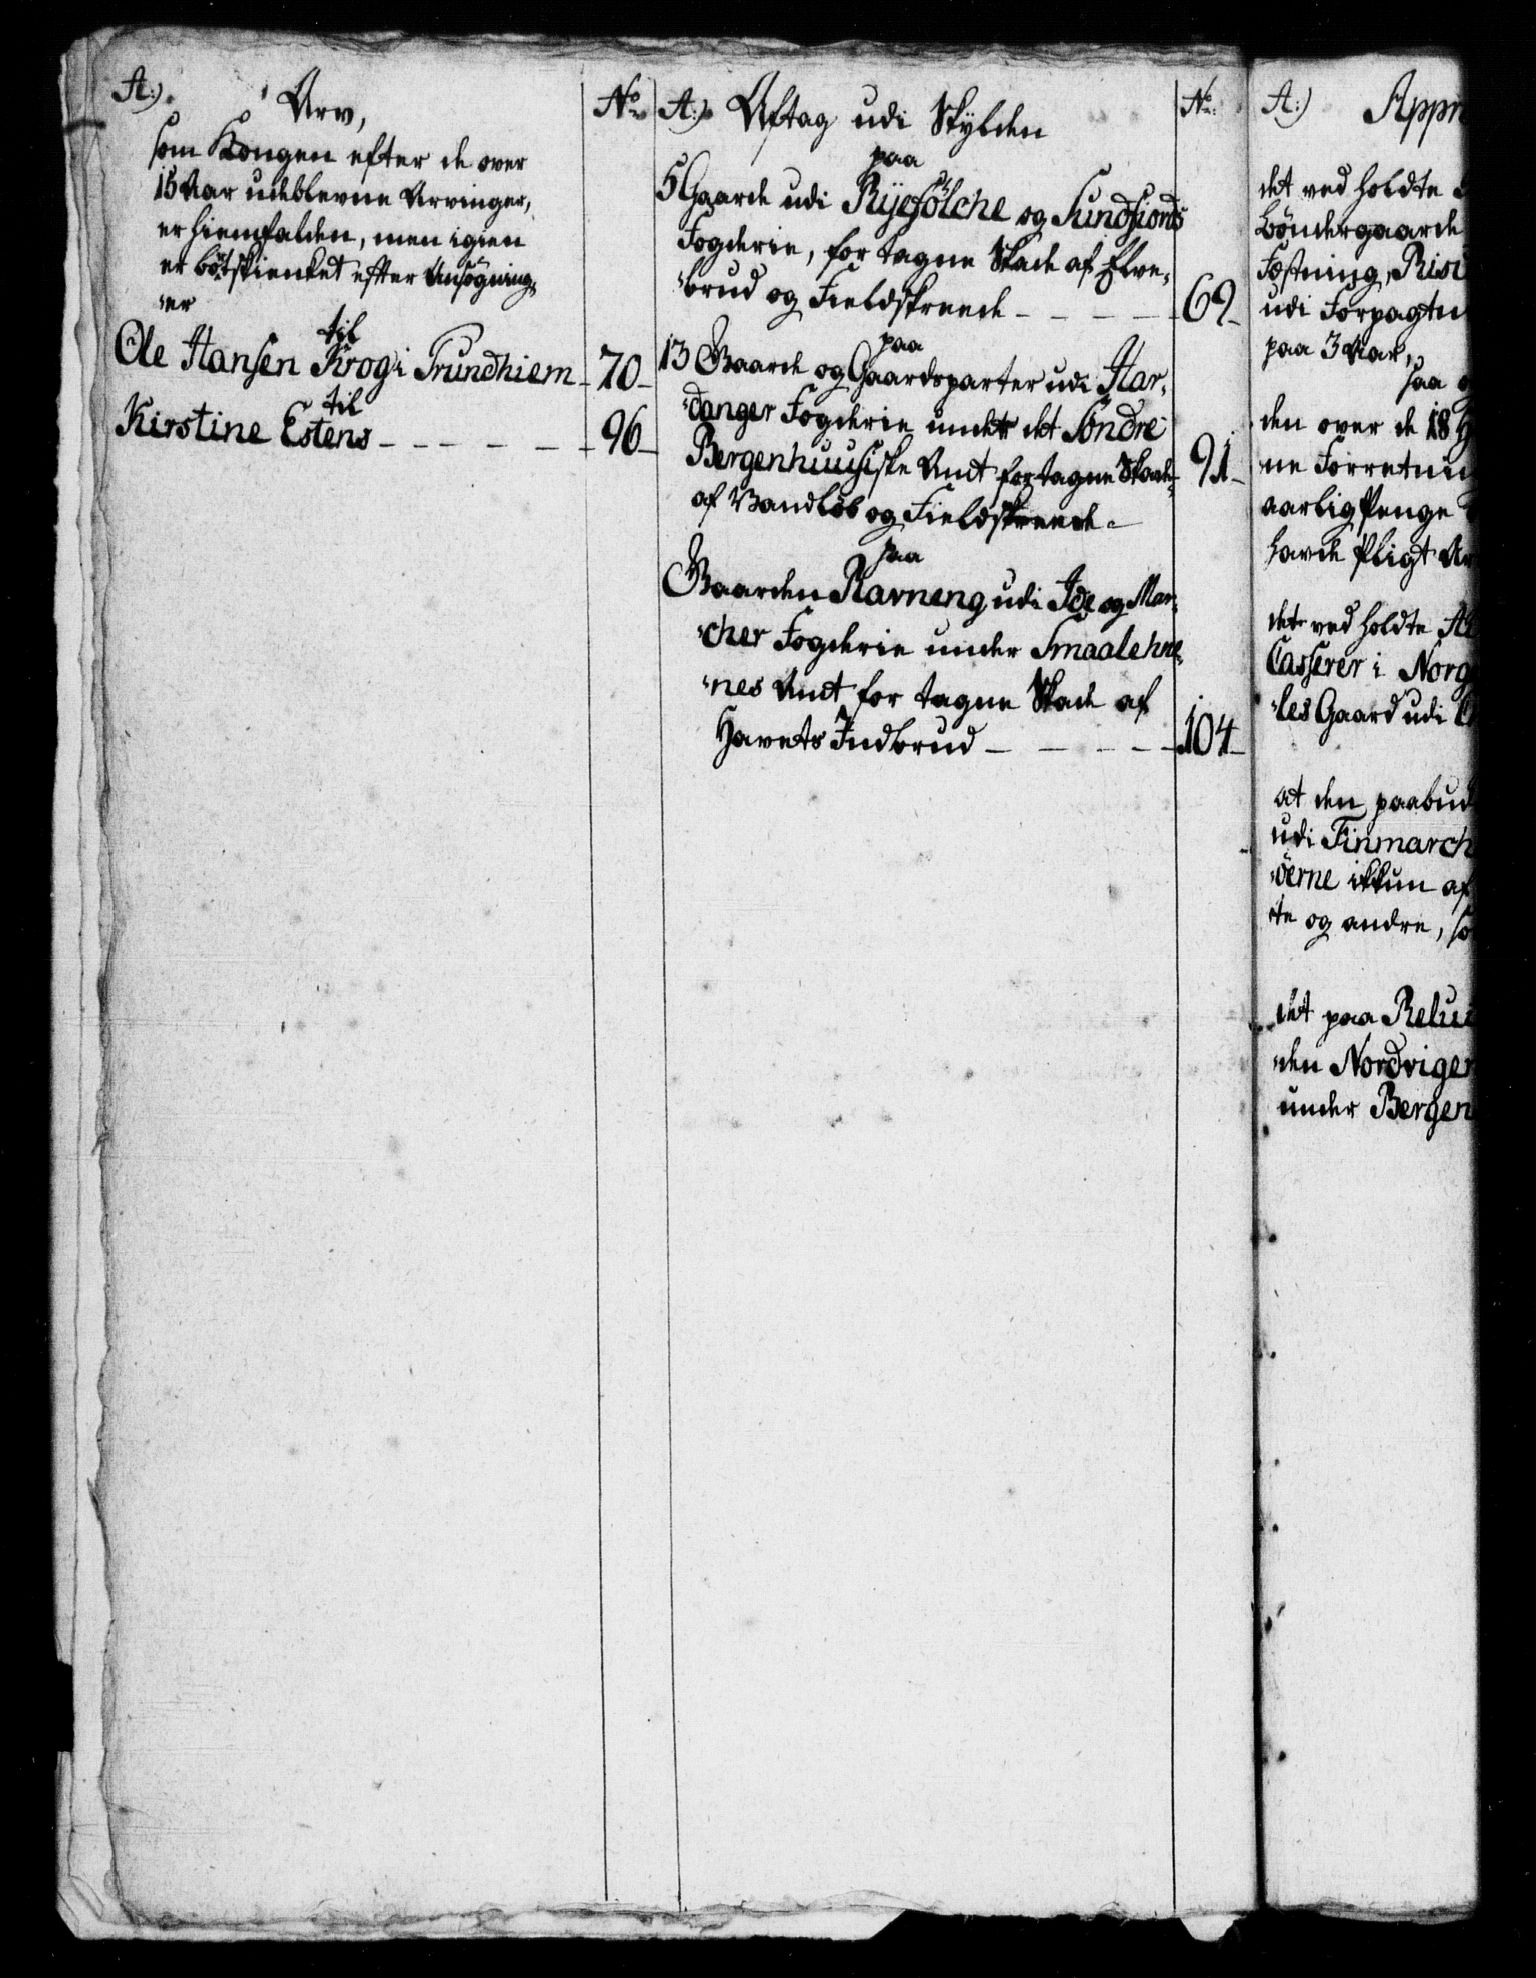 A:) Arv,
som Kongen efter de over
15 Aar udeblevne Arvinger,
er hiemfalden, men igien
er bortskienket efter Ansögning-
"er
til
Ole Hansen Krog i Trundhiem - 70 -
til
Kirstine Estens - - - - - - 96 -
No
A:) Aftag udi Skylden
paa
5 Gaarde udi Ryefölche og Sundfiords
Fogderie, for tagne Skade af Elve-
"brud og Fieldskreede - - - - - 69 -
paa
13 Gaarde og Gaardsparter udi Har-
"danger Fogderie under det Söndre
Bergenhuusiske Amt for tagne Skade
af Vandlöb og Fieldskreede - 91 -
paa
Gaarden Ravneng udi Ide og Mar-
"cher Fogderie under Smaalehne-
"nes Amt for tagne Skade af
Havets Indbrud - - - - - 104 -
No
A:) Appr
det ved holdte
Böndergaarde
Fæstning, Risi
udi Forpagtn
paa 3 Aar,
saa
den over de 18
ne Forretni
aarlig Penge
havde Pligt Ar
det ved holdte
Casserer i Norg
"les Gaard udi
at den paabud
udi Finmarch
"öerne ikkun af
te og andre, so
det paa Relui
"den Nordviger
under Bergen